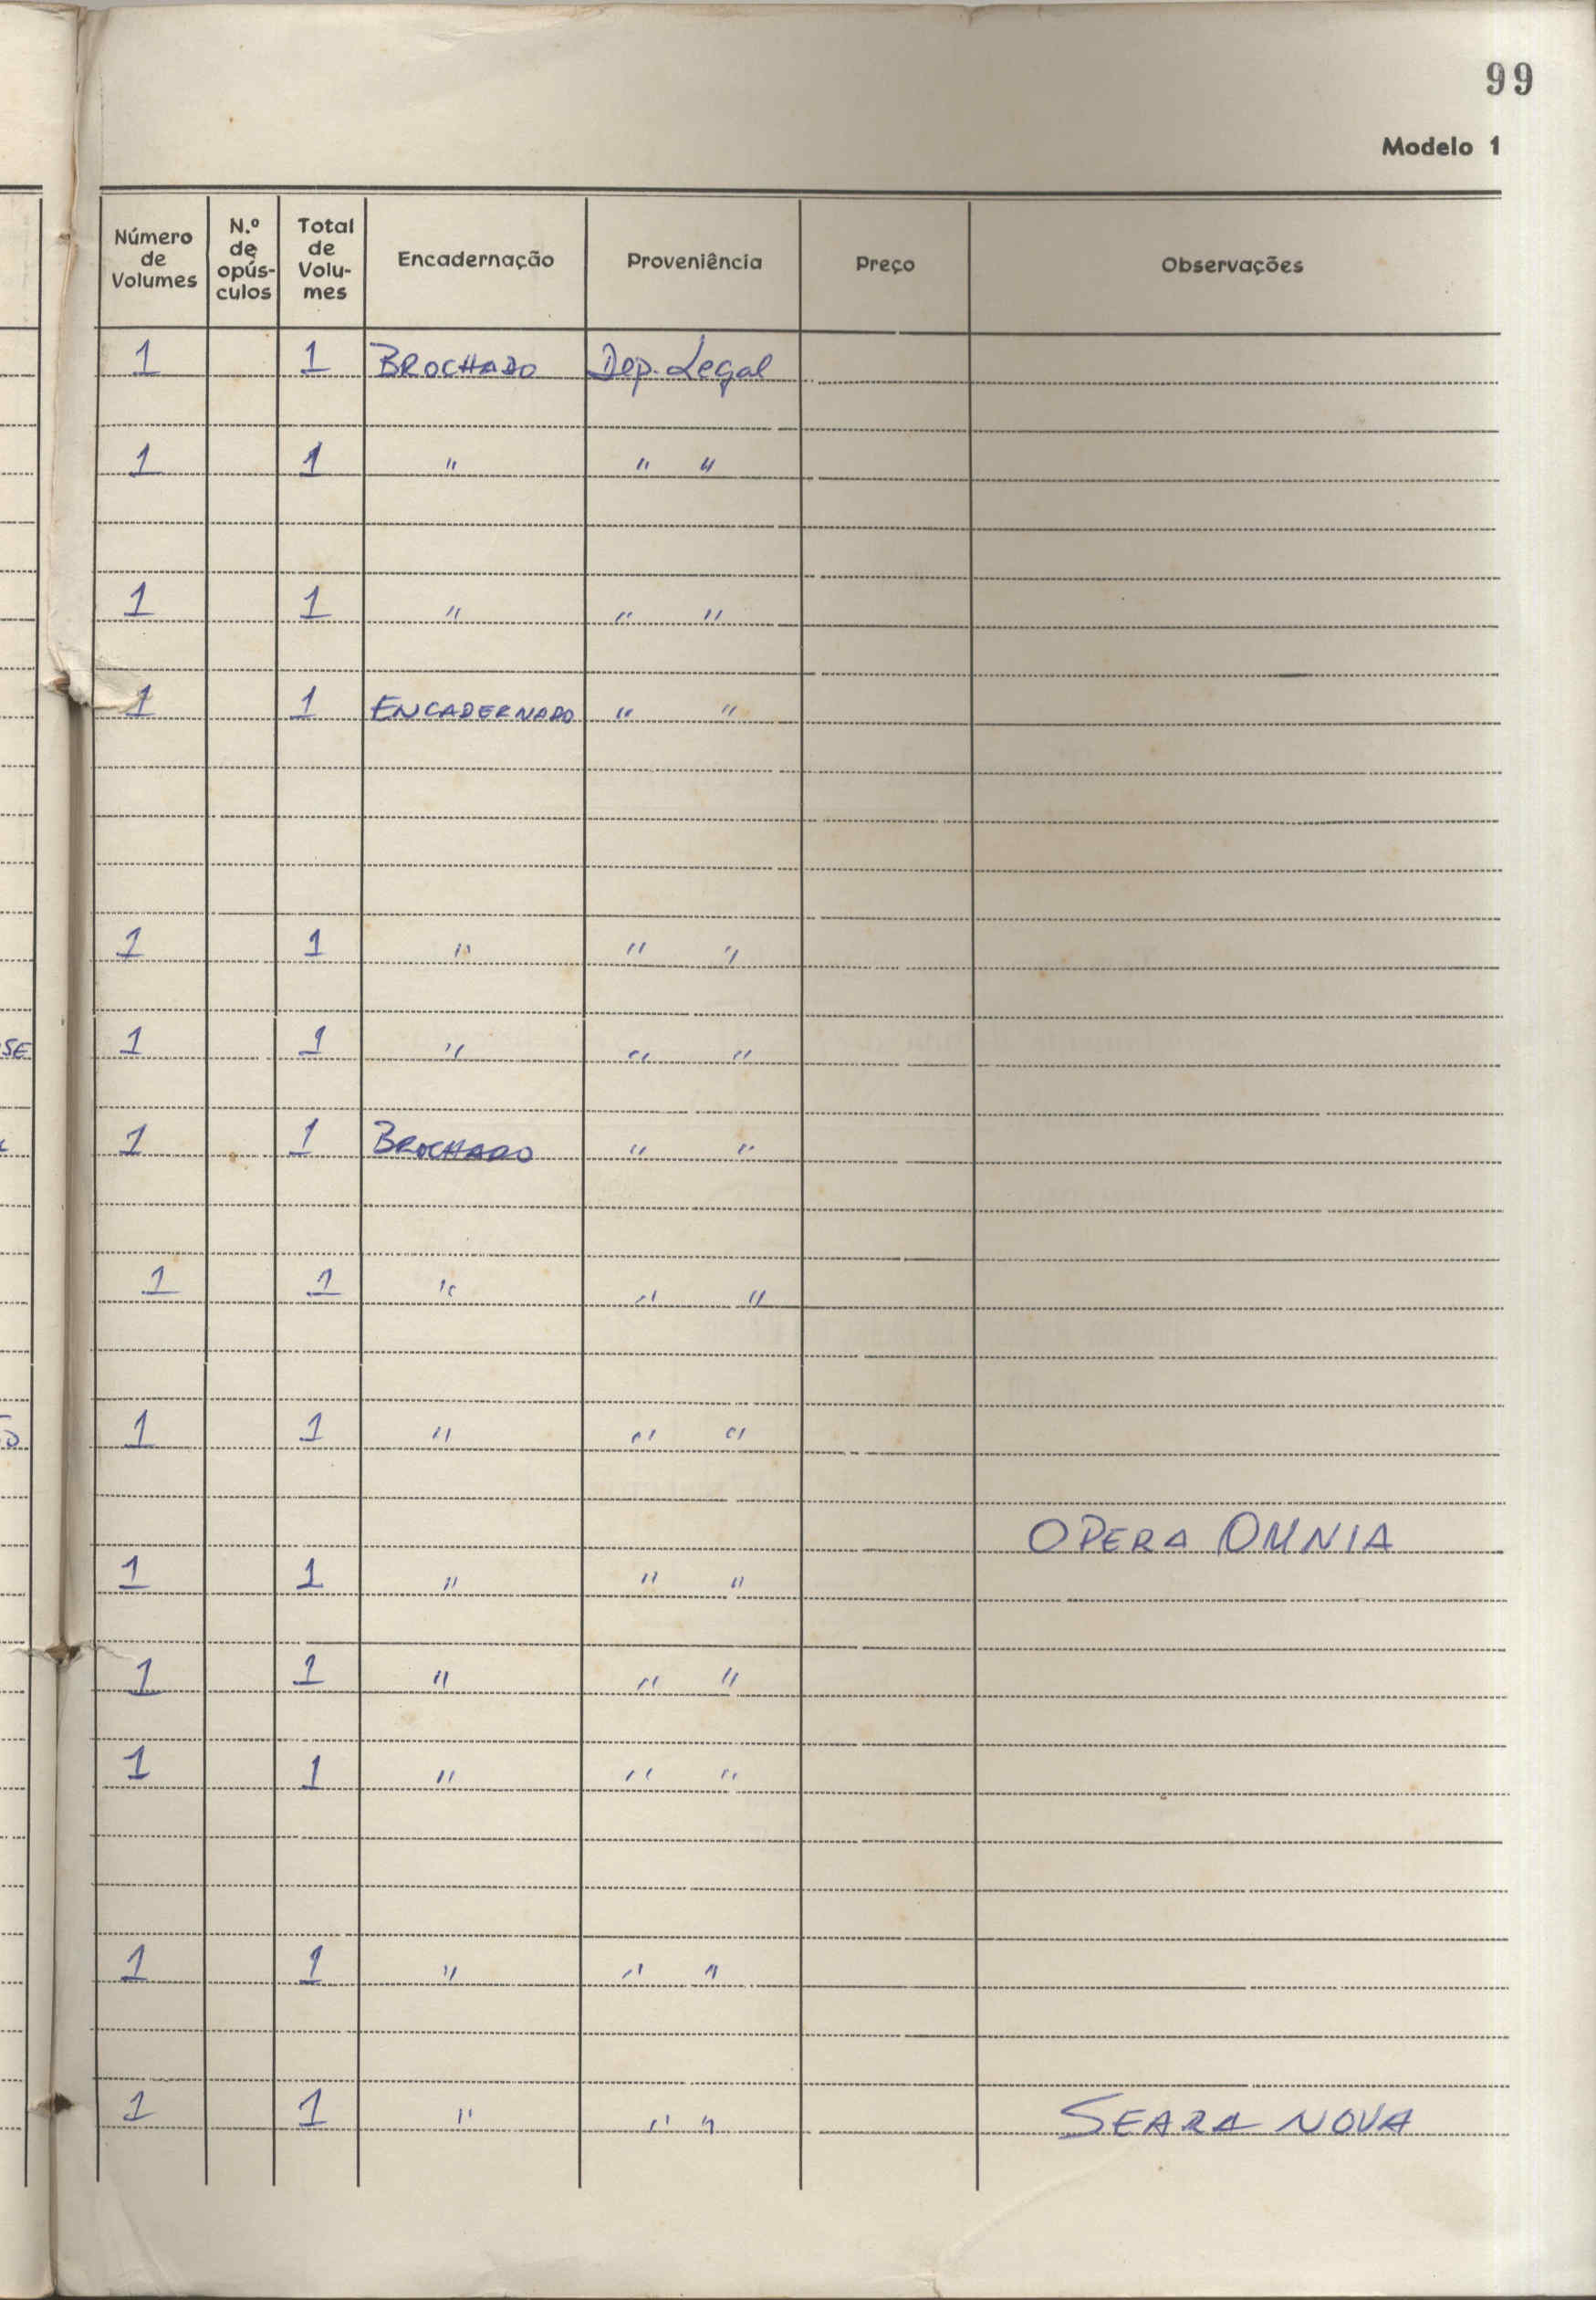 99
Modelo 1
Número de Volumes N.º de opús-culos Total de Volu-mes Encadernação Proveniência Preço Observações
1 1 BROCHADO Dep. Legal
1 1 " " "
1 1 " " "
1 1 ENCADERNADO " "
1 1 " " "
SE 1 1 " " "
1 1 BROCHADO " "
1 1 " " "
1 1 " " "
OPERA OMNIA
1 1 " " "
1 1 " " "
1 1 " " "
1 1 " " "
1 1 " " " SEARA NOVA